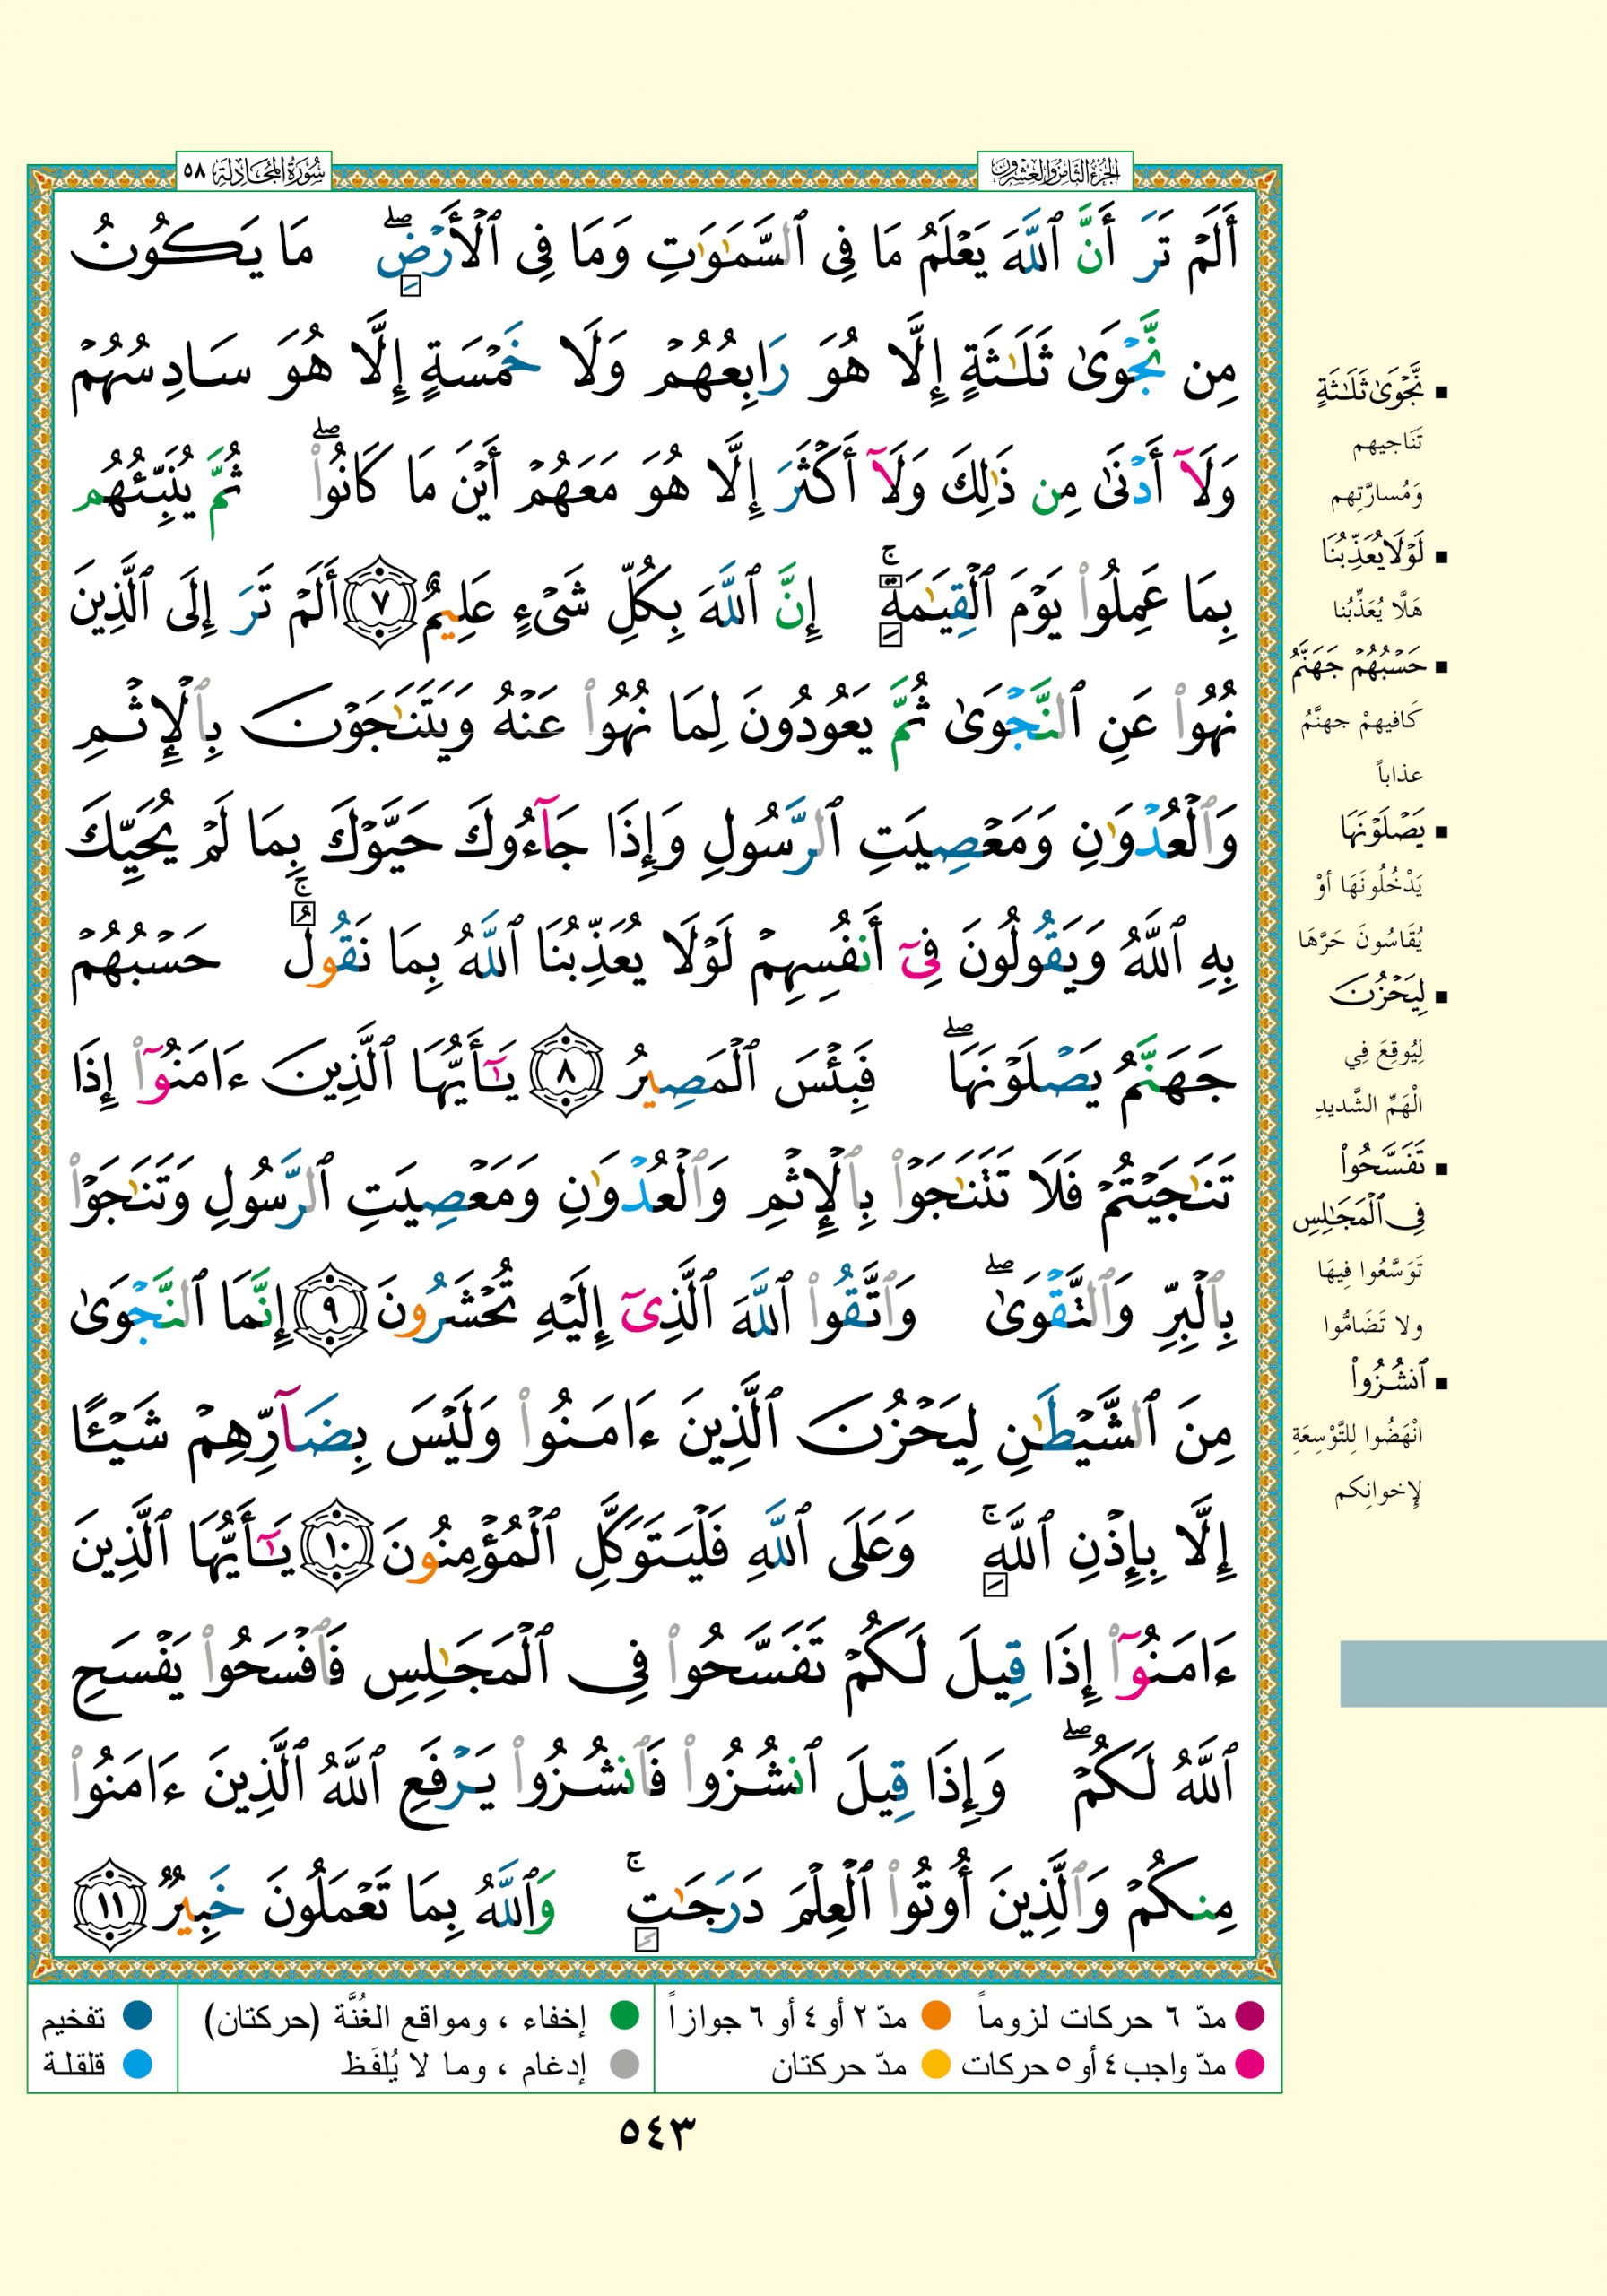 الجزء الثامن والعشرون
سورة المجادلة ٥٨
أَلَمْ تَرَ أَنَّ ٱللَّهَ يَعْلَمُ مَا فِى ٱلسَّمَـٰوَٰتِ وَمَا فِى ٱلْأَرْضِ ۖ مَا يَكُونُ
مِن نَّجْوَىٰ ثَلَـٰثَةٍ إِلَّا هُوَ رَابِعُهُمْ وَلَا خَمْسَةٍ إِلَّا هُوَ سَادِسُهُمْ
وَلَآ أَدْنَىٰ مِن ذَٰلِكَ وَلَآ أَكْثَرَ إِلَّا هُوَ مَعَهُمْ أَيْنَ مَا كَانُوا۟ ۖ ثُمَّ يُنَبِّئُهُم
بِمَا عَمِلُوا۟ يَوْمَ ٱلْقِيَـٰمَةِ ۚ إِنَّ ٱللَّهَ بِكُلِّ شَىْءٍ عَلِيمٌ ٧ أَلَمْ تَرَ إِلَى ٱلَّذِينَ
نُهُوا۟ عَنِ ٱلنَّجْوَىٰ ثُمَّ يَعُودُونَ لِمَا نُهُوا۟ عَنْهُ وَيَتَنَـٰجَوْنَ بِٱلْإِثْمِ
وَٱلْعُدْوَٰنِ وَمَعْصِيَتِ ٱلرَّسُولِ وَإِذَا جَآءُوكَ حَيَّوْكَ بِمَا لَمْ يُحَيِّكَ
بِهِ ٱللَّهُ وَيَقُولُونَ فِىٓ أَنفُسِهِمْ لَوْلَا يُعَذِّبُنَا ٱللَّهُ بِمَا نَقُولُ ۚ حَسْبُهُمْ
جَهَنَّمُ يَصْلَوْنَهَا ۖ فَبِئْسَ ٱلْمَصِيرُ ٨ يَـٰٓأَيُّهَا ٱلَّذِينَ ءَامَنُوٓا۟ إِذَا
تَنَـٰجَيْتُمْ فَلَا تَتَنَـٰجَوْا۟ بِٱلْإِثْمِ وَٱلْعُدْوَٰنِ وَمَعْصِيَتِ ٱلرَّسُولِ وَتَنَـٰجَوْا۟
بِٱلْبِرِّ وَٱلتَّقْوَىٰ ۖ وَٱتَّقُوا۟ ٱللَّهَ ٱلَّذِىٓ إِلَيْهِ تُحْشَرُونَ ٩ إِنَّمَا ٱلنَّجْوَىٰ
مِنَ ٱلشَّيْطَـٰنِ لِيَحْزُنَ ٱلَّذِينَ ءَامَنُوا۟ وَلَيْسَ بِضَآرِّهِمْ شَيْـًٔا
إِلَّا بِإِذْنِ ٱللَّهِ ۚ وَعَلَى ٱللَّهِ فَلْيَتَوَكَّلِ ٱلْمُؤْمِنُونَ ١٠ يَـٰٓأَيُّهَا ٱلَّذِينَ
ءَامَنُوٓا۟ إِذَا قِيلَ لَكُمْ تَفَسَّحُوا۟ فِى ٱلْمَجَـٰلِسِ فَٱفْسَحُوا۟ يَفْسَحِ
ٱللَّهُ لَكُمْ ۖ وَإِذَا قِيلَ ٱنشُزُوا۟ فَٱنشُزُوا۟ يَرْفَعِ ٱللَّهُ ٱلَّذِينَ ءَامَنُوا۟
مِنكُمْ وَٱلَّذِينَ أُوتُوا۟ ٱلْعِلْمَ دَرَجَـٰتٍ ۚ وَٱللَّهُ بِمَا تَعْمَلُونَ خَبِيرٌ ١١
نَّجْوَىٰ ثَلَـٰثَةٍ
تَنَاجيهم
وَمُسارَّتِهم
لَوْلَا يُعَذِّبُنَا
هَلَّا يُعَذِّبُنا
حَسْبُهُمْ جَهَنَّمُ
كَافيهِمْ جهنَّمُ
عذاباً
يَصْلَوْنَهَا
يَدْخُلُونَهَا أوْ
يُقَاسُونَ حَرَّهَا
لِيَحْزُنَ
لِيُوقِعَ فِي
الْهَمِّ الشَّديدِ
تَفَسَّحُوا۟
فِى ٱلْمَجَـٰلِسِ
تَوَسَّعُوا فِيهَا
ولا تَضَامُّوا
ٱنشُزُوا۟
انْهَضُوا لِلتَّوْسِعَةِ
لإخوانِكم
مدّ ٦ حركات لزوماً مدّ ٢ أو ٤ أو ٦ جوازاً إخفاء ، ومواقع الغُنَّة (حركتان) تفخيم
مدّ واجب ٤ أو ٥ حركات مدّ حركتان إدغام ، وما لا يُلفَظ قلقلة
٥٤٣